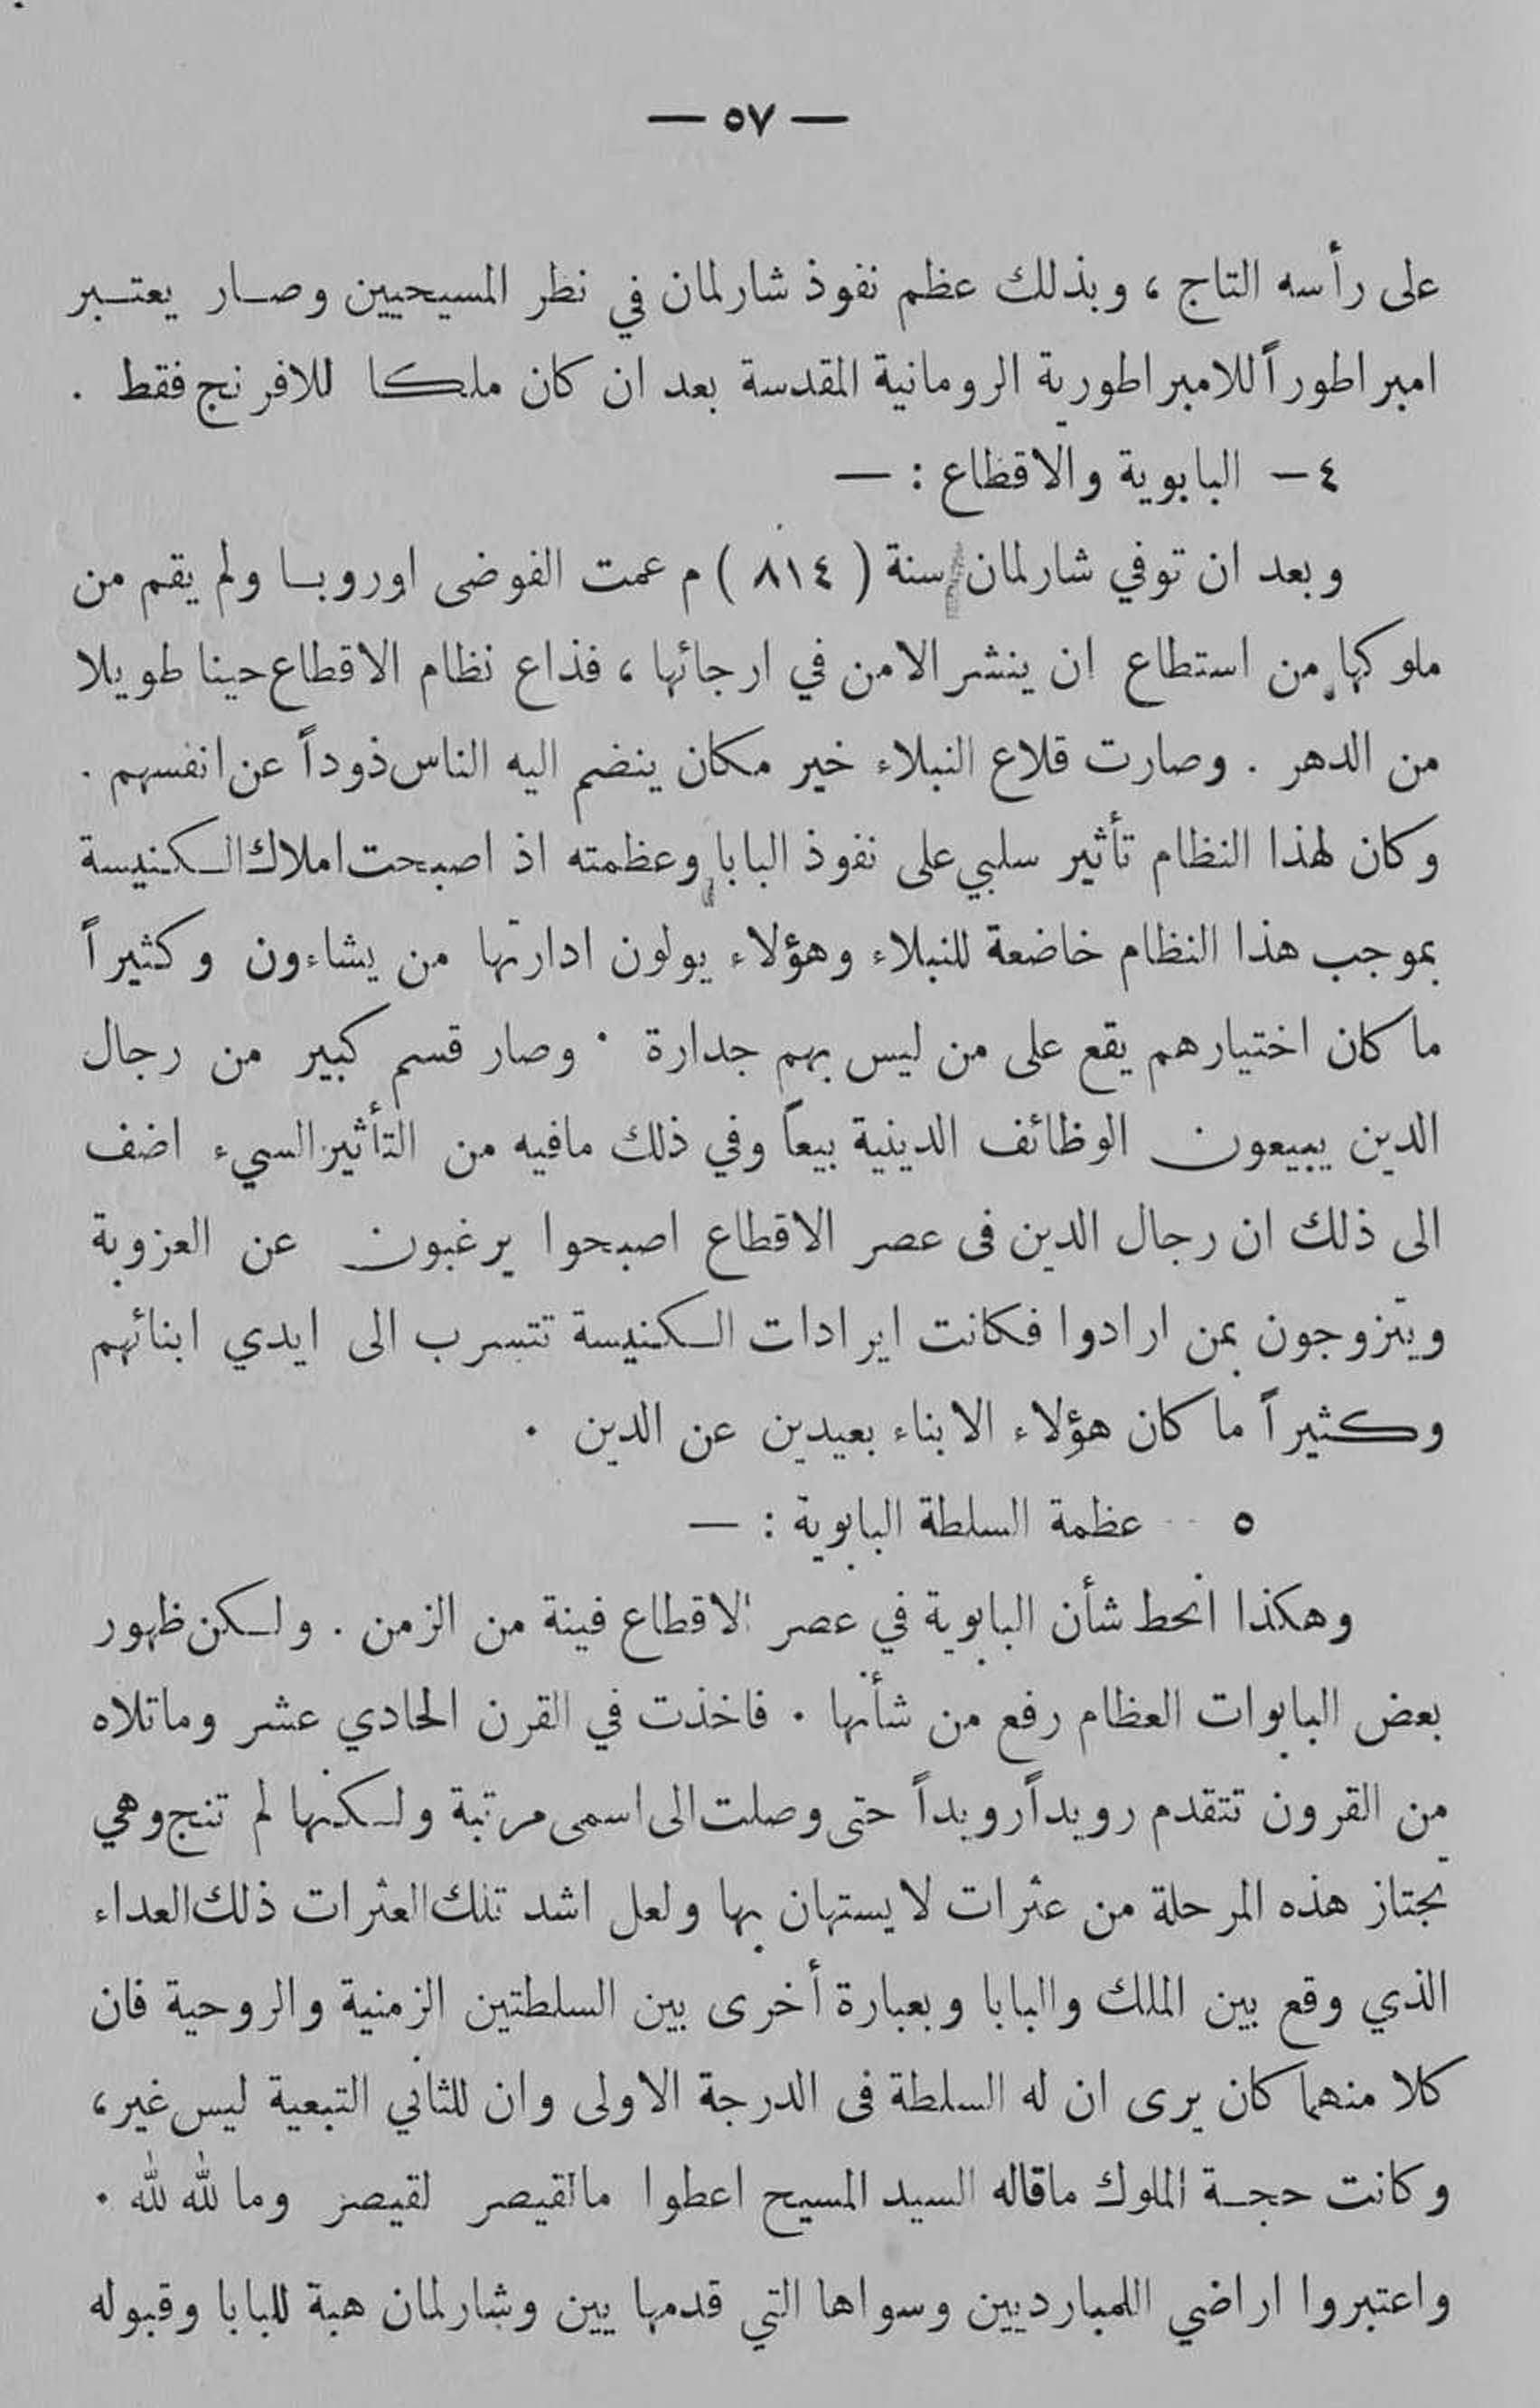 — ٥٧ —
على رأسه التاج ، وبذلك عظم نفوذ شارلمان في نظر المسيحيين وصار يعتبر
امبراطوراً للامبراطورية الرومانية المقدسة بعد ان كان ملكا للافرنج فقط .
٤ – البابوية والاقطاع : —
وبعد ان توفي شارلمان سنة ( ٨١٤ ) م عمت الفوضى اوروبا ولم يقم من
ملوكها من استطاع ان ينشر الامن في ارجائها ، فذاع نظام الاقطاع حينا طويلا
من الدهر . وصارت قلاع النبلاء خير مكان ينضم اليه الناس ذوداً عن انفسهم .
وكان لهذا النظام تأثير سلبي على نفوذ البابا وعظمته اذ اصبحت املاك الكنيسة
بموجب هذا النظام خاضعة للنبلاء وهؤلاء يولون ادارتها من يشاءون وكثيراً
ما كان اختيارهم يقع على من ليس بهم جدارة . وصار قسم كبير من رجال
الدين يبيعون الوظائف الدينية بيعاً وفي ذلك مافيه من التأثير السيء اضف
الى ذلك ان رجال الدين فى عصر الاقطاع اصبحوا يرغبون عن العزوبة
ويتزوجون بمن ارادوا فكانت ايرادات الكنيسة تتسرب الى ايدي ابنائهم
وكثيراً ما كان هؤلاء الابناء بعيدين عن الدين .
٥ – عظمة السلطة البابوية : —
وهكذا انحط شأن البابوية في عصر الاقطاع فينة من الزمن . ولكن ظهور
بعض البابوات العظام رفع من شأنها . فاخذت في القرن الحادي عشر وماتلاه
من القرون تتقدم رويداً رويداً حتى وصلت الى اسمى مرتبة ولكنها لم تنج وهي
تجتاز هذه المرحلة من عثرات لا يستهان بها ولعل اشد تلك العثرات ذلك العداء
الذي وقع بين الملك والبابا وبعبارة أخرى بين السلطتين الزمنية والروحية فان
كلا منهما كان يرى ان له السلطة فى الدرجة الاولى وان للثاني التبعية ليس غير ،
وكانت حجة الملوك ماقاله السيد المسيح اعطوا مالقيصر لقيصر وما لله لله .
واعتبروا اراضي اللمبارديين وسواها التي قدمها بيين وشارلمان هبة للبابا وقبوله